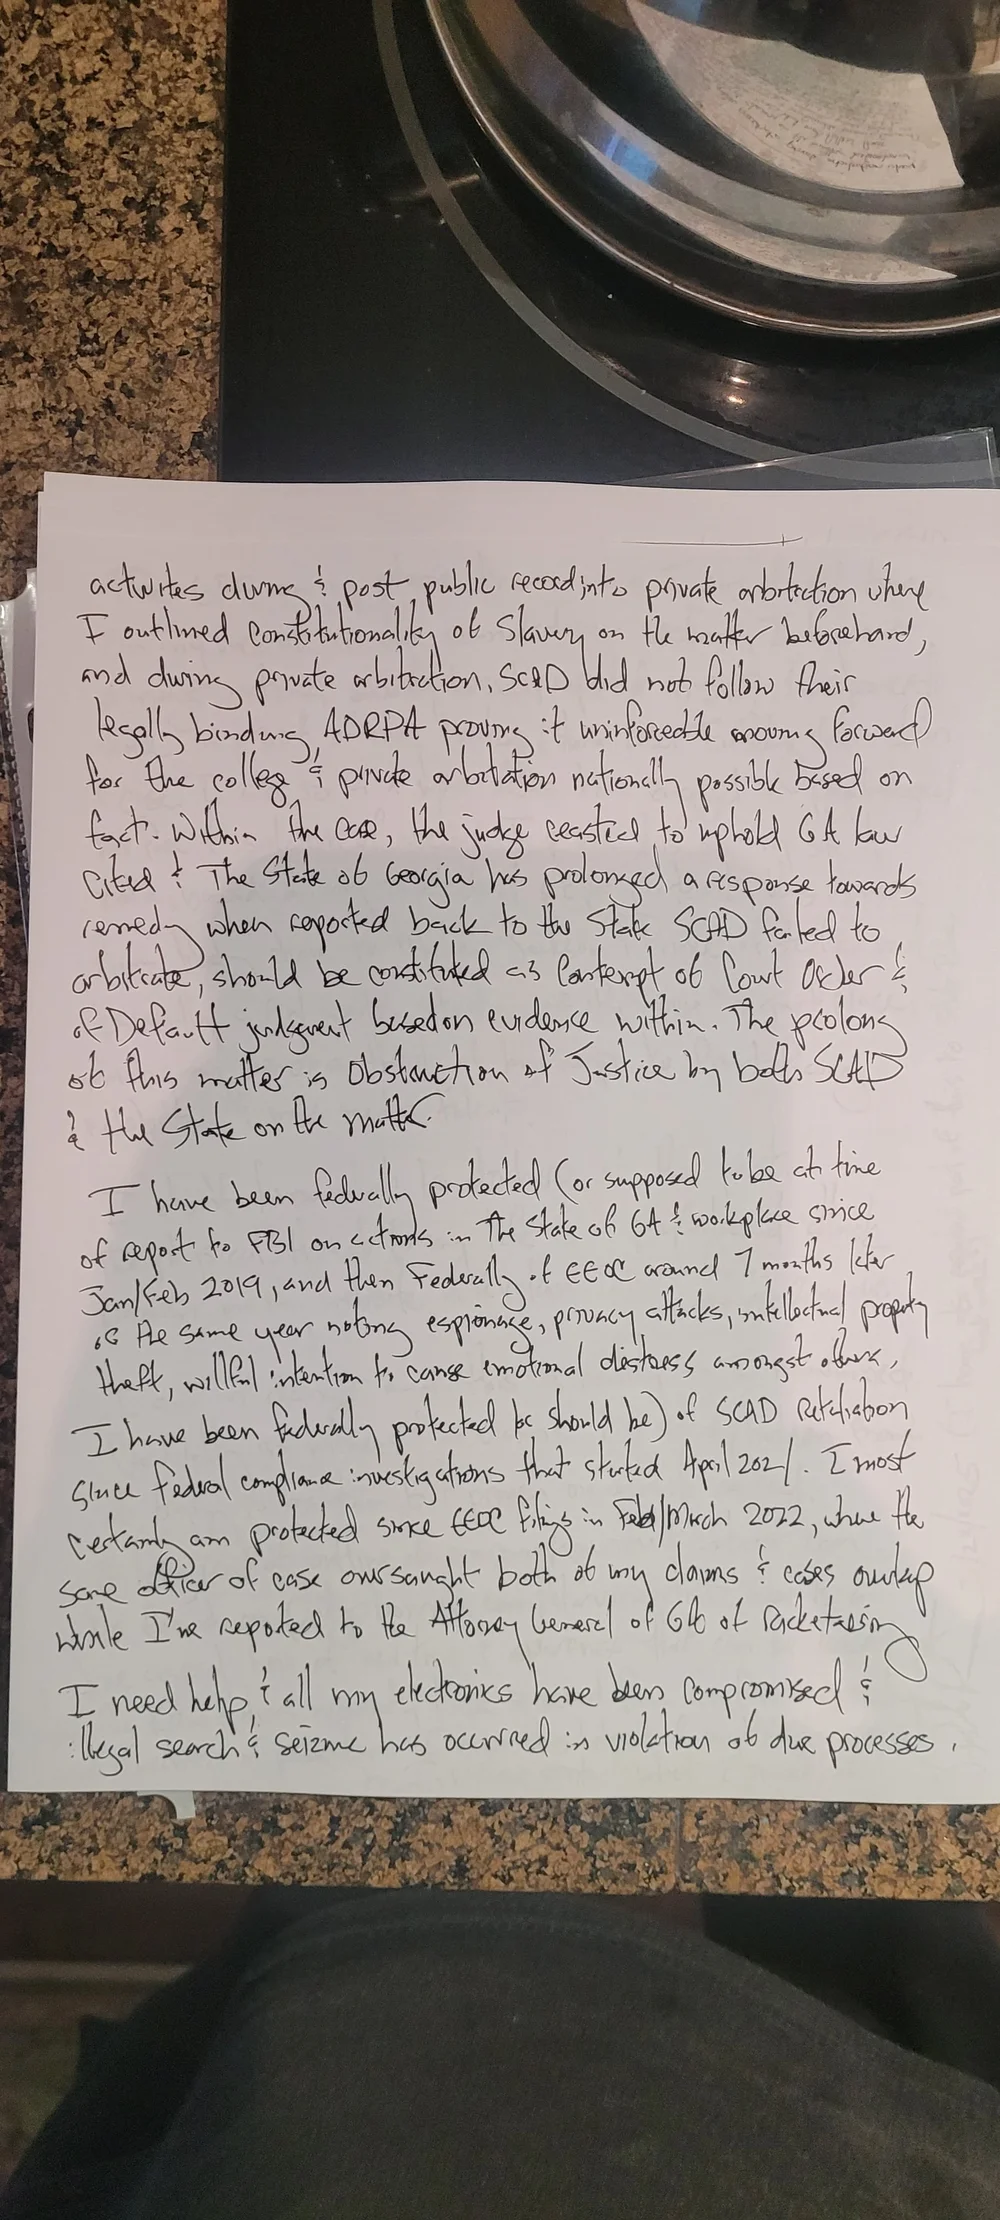 activites during & post public record into private arbitration where
I outlined Constitutionality of Slavery on the matter beforehand,
and during private arbitration, SCAD did not follow their
legally binding ADRPA proving it uninforceable moving forward
for the college & private arbitation nationally possible based on
fact. Within the case, the judge ceasted to uphold GA law
cited & The State of Georgia has prolonged a response towards
remedy when reported back to the State SCAD failed to
arbitrate, should be constituted as Contempt of Court Order &
of Default judgment based on evidence within. The prolong
of this matter is Obstruction of Justice by both SCAD
& the State on the matter.
I have been federally protected (or supposed to be at time
of report to FBI on actions in The State of GA & workplace since
Jan/Feb 2019, and then Federally of EEOC around 7 months later
of the same year noting espionage, privacy attacks, intellectual property
theft, willful intention to cause emotional distress amongst others,
I have been federally protected (or should be) of SCAD Retaliation
since federal compliance investigations that started April 2021. I most
certainly am protected since EEOC filings in Feb/March 2022, where the
same officer of case oversaught both of my claims & cases overlap
while I've reported to the Attorney General of GA of Racketeering
I need help, & all my electronics have been compromised &
illegal search & seizure has occurred in violation of due processes.